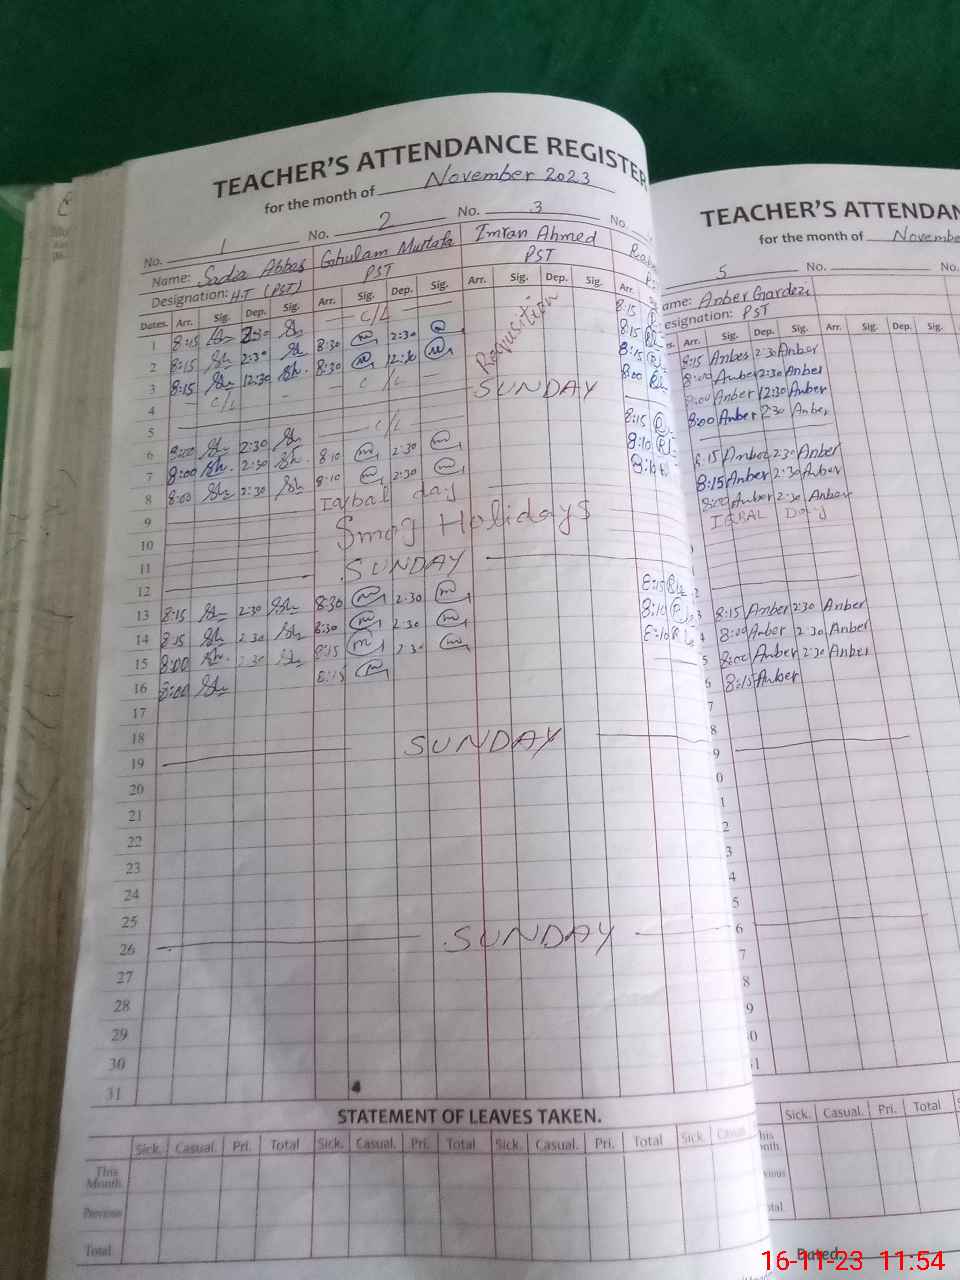 TEACHER'S ATTENDANCE REGISTER
for the month of November 2023
No. 1 No. 2 No. 3 No.
Name: Sadia Abbas Gohulam Murtafa Imran Ahmed
Designation: H.T (PST) PST PST
Dates. Arr. Sig. Dep. Sig. Arr. Sig. Dep. Sig. Arr. Sig. Dep. Sig. Arr.
1 8:15 2:30 C/L 8:15
2 8:15 2:30 8:30 2:30 8:15
3 8:15 12:30 8:30 12:30 8:15
Requisition
4 C/L C/L 8:00
5 SUNDAY
6 8:00 2:30 C/L 8:15
7 8:00 2:30 8:10 2:30 8:10
8 8:00 2:30 8:10 2:30 8:10
9 Iqbal day
10 Smog Holidays
11
12 SUNDAY
13 8:15 2:30 8:30 2:30 8:15
14 8:15 2:30 8:30 2:30 8:10
15 8:00 2:30 8:15 2:30 8:10
16 8:00 8:15
17
18
19 SUNDAY
20
21
22
23
24
25
26 SUNDAY
27
28
29
30
31
STATEMENT OF LEAVES TAKEN.
Sick. Casual. Pri. Total Sick. Casual. Pri. Total Sick. Casual. Pri. Total Sick. Casual.
This Month
Previous
Total
TEACHER'S ATTENDAN
for the month of Novembe
5 No. No.
ame: Anber Gardezi
esignation: PST
Arr. Sig. Dep. Sig. Arr. Sig. Dep. Sig.
8:15 Anber 2:30 Anber
8:00 Anber 2:30 Anber
8:00 Anber 12:30 Anber
8:00 Anber 2:30 Anber
8:15 Anber 2:30 Anber
8:15 Anber 2:30 Anber
8:00 Anber 2:30 Anber
IQBAL Day
8:15 Anber 2:30 Anber
8:00 Anber 2:30 Anber
8:00 Anber 2:30 Anber
8:15 Anber
Sick. Casual. Pri. Total
Dated.
16-11-23 11:54